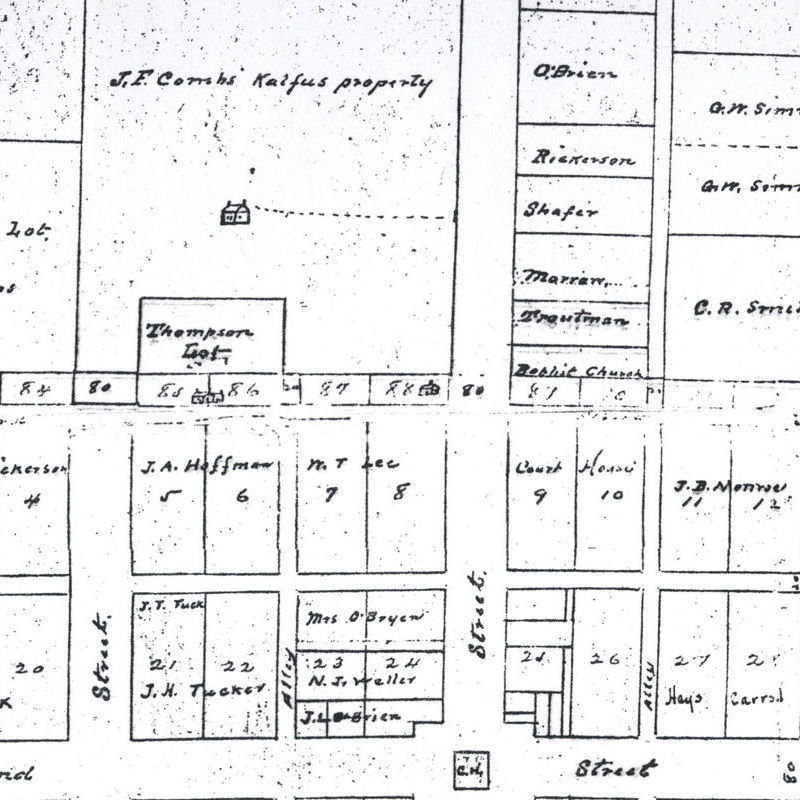 J.F. Combs Kalfus property
O'Brien
G.W. Sim
Rickerson
G.W. Sim
Shafer
Lot
Marraw
C.R. Smi
Thompson
Lot
Troutman
Baptist Church
84 80 85 86 20 87 88 80
ickerson
4
J.A. Hoffman
5 6
W. T Lee
7 8
Court House
9 10
J.B. Monroe
11 12
J.T. Tuck
Mrs O'Bryen
Street.
Street.
20
21 22
J.H. Tucker
Alley
23 24
N.J. Weller
J.L. O'Brien
25 26
Alley
27
Hays Carrol
K
nd
C.H.
Street
80